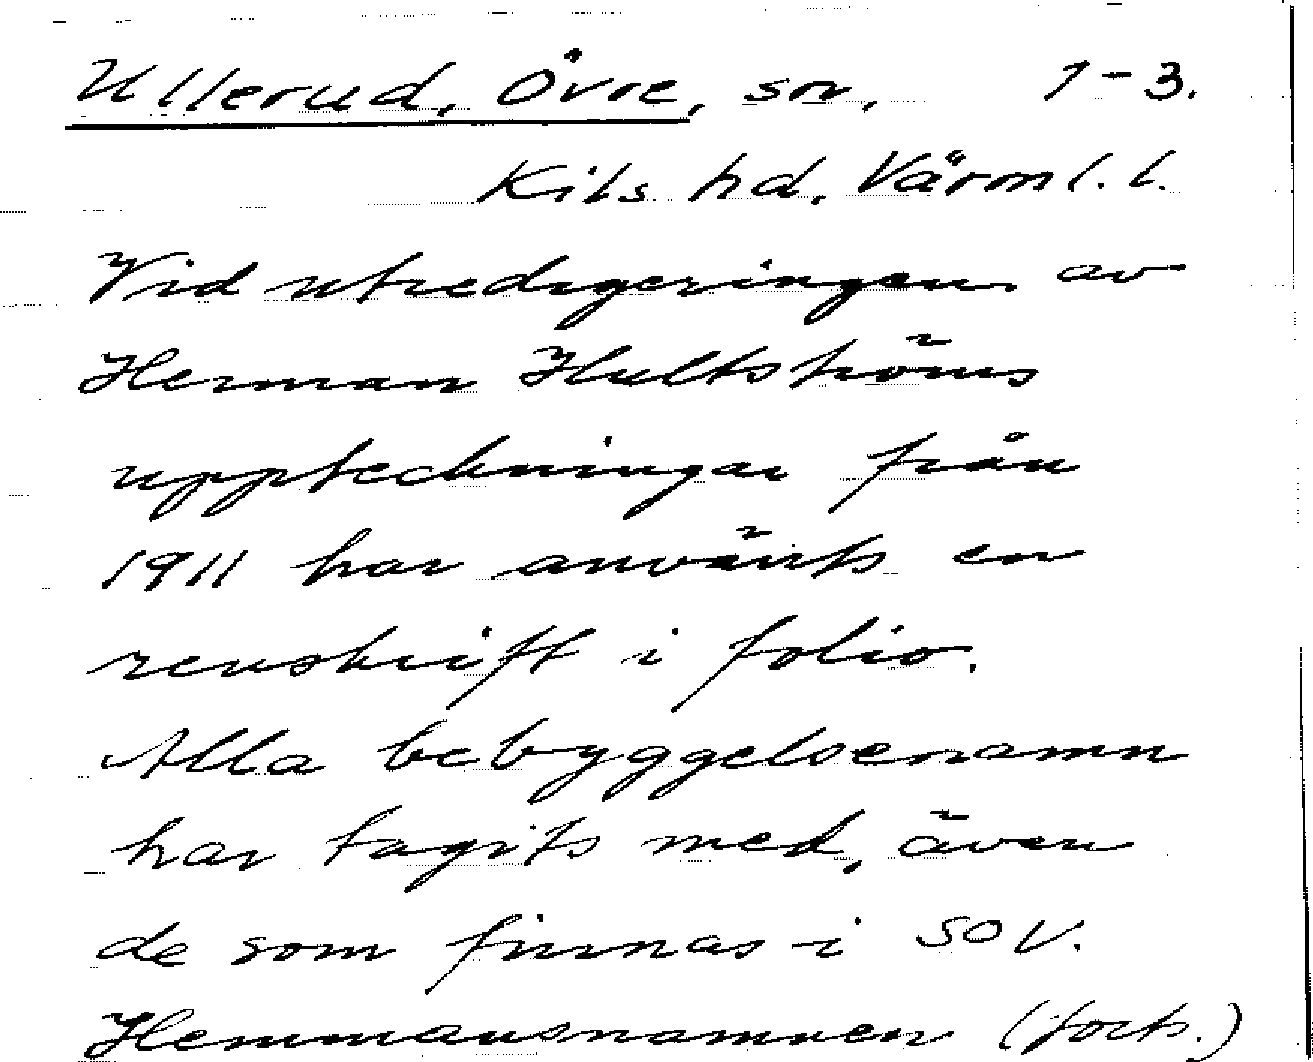 Ullerud, Övre, sn, 1-3.
Kils hd, Värml. l.
Vid utredigeringen av
Herman Hultströms
uppteckningar från
1911 har använts en
renskrift i folio.
Alla bebyggelsenamn
har tagits med, även
de som finnas i SOV.
Hemmansnamnen (forts.)